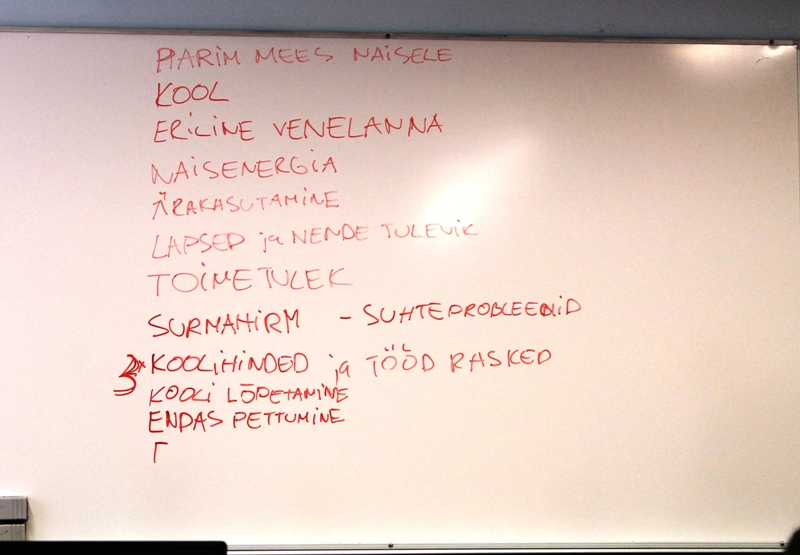 PARIM MEES NAISELE
KOOL
ERILINE VENELANNA
NAISENERGIA
ÄRAKASUTAMINE
LAPSED ja NENDE TULEVIK
TOIMETULEK
SURMAHIRM - SUHTEPROBLEEMID
KOOLIHINDED ja TÖÖD RASKED
KOOLI LÕPETAMINE
ENDAS PETTUMINE